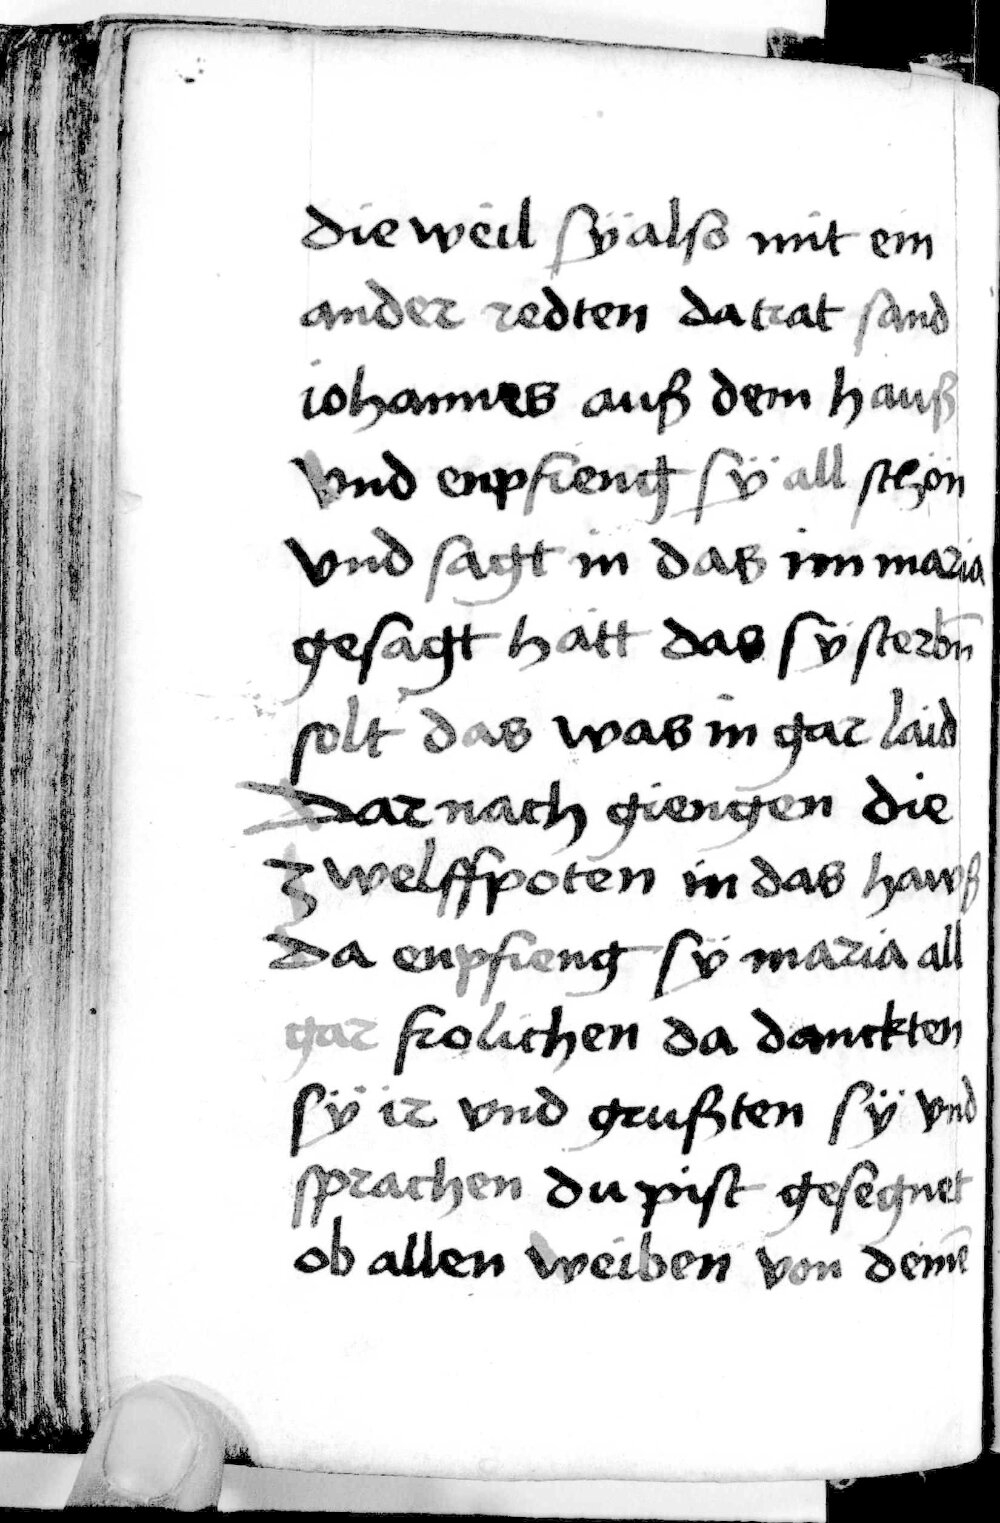 die weil sÿ also mit ein
ander redten da trat sand
iohannes auß dem hauß
vnd enpfieng sÿ all schön
vnd sagt in das im maria
gesagt hätt das sÿ sterbn̄
solt das was in gar laid
Dar nach giengen die
zwelffpoten in das hawß
da enpfieng sÿ maria all
gar frolichen da danckten
sÿ ir vnd grußten sÿ vnd
sprachen du pist gesegnet
ob allen weiben von deinē